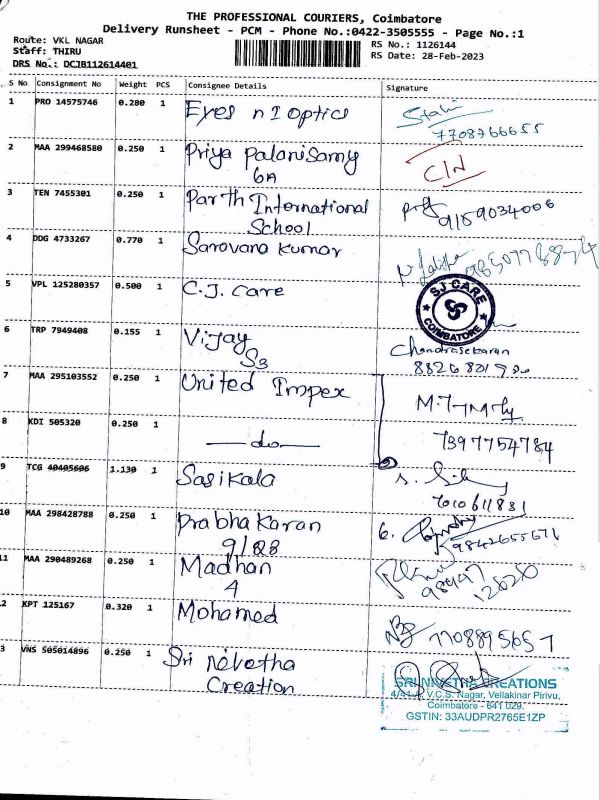 THE PROFESSIONAL COURIERS, Coimbatore
Delivery Runsheet - PCM - Phone No.:0422-3505555 - Page No.:1
Route: VKL NAGAR
Staff: THIRU
DRS No.: DCJB112614401
RS No.: 1126144
RS Date: 28-Feb-2023
S No Consignment No Weight PCS Consignee Details Signature
1 PRO 14575746 0.280 1 Eyes n I Optics
7708766655
2 MAA 299468580 0.250 1 Priya Palanisamy
6A
3 TEN 7455301 0.250 1 Parth International 9159034006
School
4 DDG 4733267 0.770 1 Saravana Kumar
5 VPL 125280357 0.500 1 C.J. Care
SJ CARE
COIMBATORE
6 TRP 7949408 0.155 1 Vijay Chandrasekaran
S3
7 MAA 295103552 0.250 1 United Impex
8 KDI 505320 0.250 1 —do— 7397754784
9 TCG 40405606 1.130 1 Sasikala
7010611831
10 MAA 298428788 0.250 1 Prabhakaran
9/28 9842655671
11 MAA 290489268 0.250 1 Madhan
4
2 KPT 125167 0.320 1 Mohamed 7708895657
3 VNS 505014896 0.250 1 Sri Nivetha
Creation
SRI NIVETHA CREATIONS
V.C.S. Nagar, Vellakinar Pirivu,
Coimbatore - 641 029.
GSTIN: 33AUDPR2765E1ZP